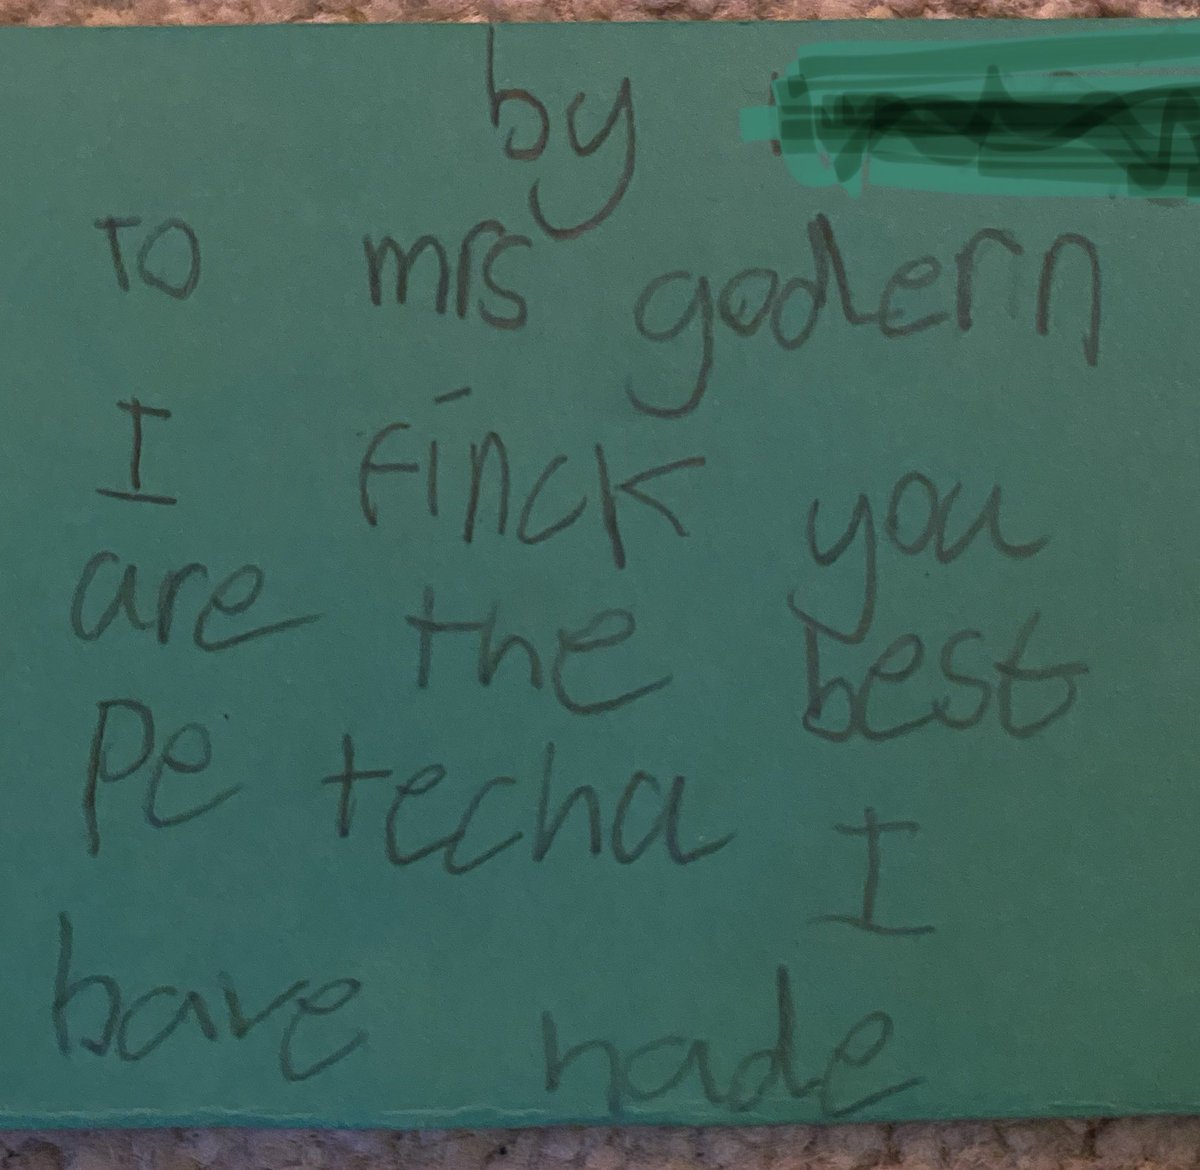 by
To mrs godern
I Finck you
are the best
Pe techa I
have hade